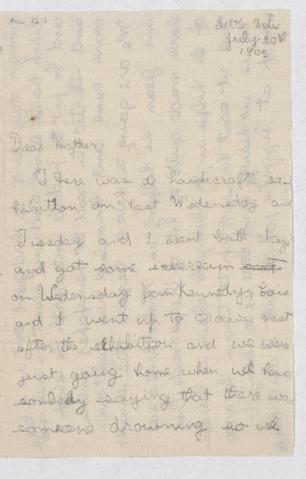 Acc 1211
Little Metis
July 20th
1905
Dear Mother,
There was a handicrafts ex-
hibition on last Wednesday and
Tuesday and I went both days
and got some icecream
on Wednesday Kennedy, Lou
and I went up to craws nest
after the ehibition and we were
just going home when we heard
sombody saying that there was
someone drowning so we